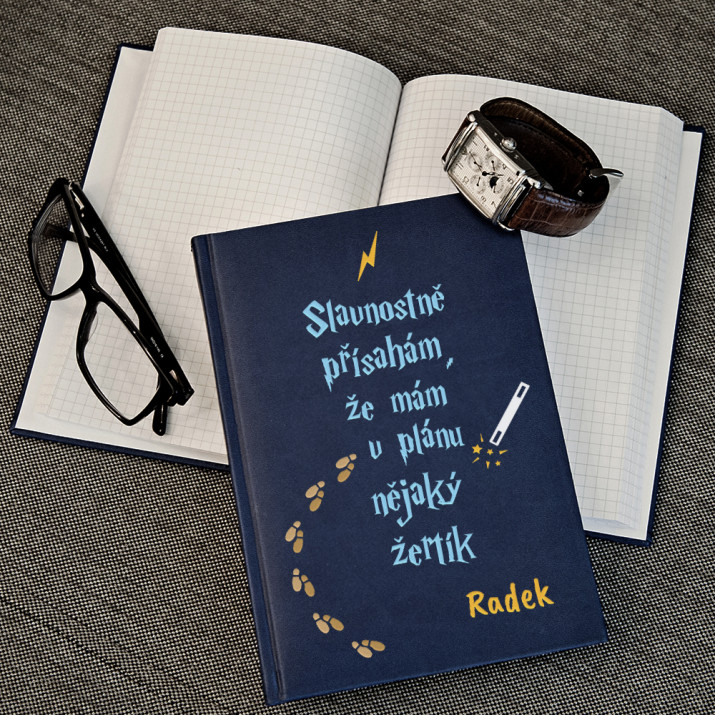 Slavnostně
přísahám,
že mám
v plánu
nějaký
žertík
Radek